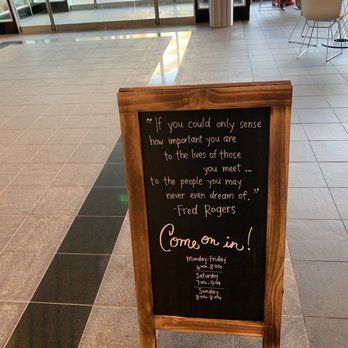 "If you could only sense
how important you are
to the lives of those
you meet...
to the people you may
never even dream of."
-Fred Rogers
Come on in!
Monday-Friday
Saturday
Sunday